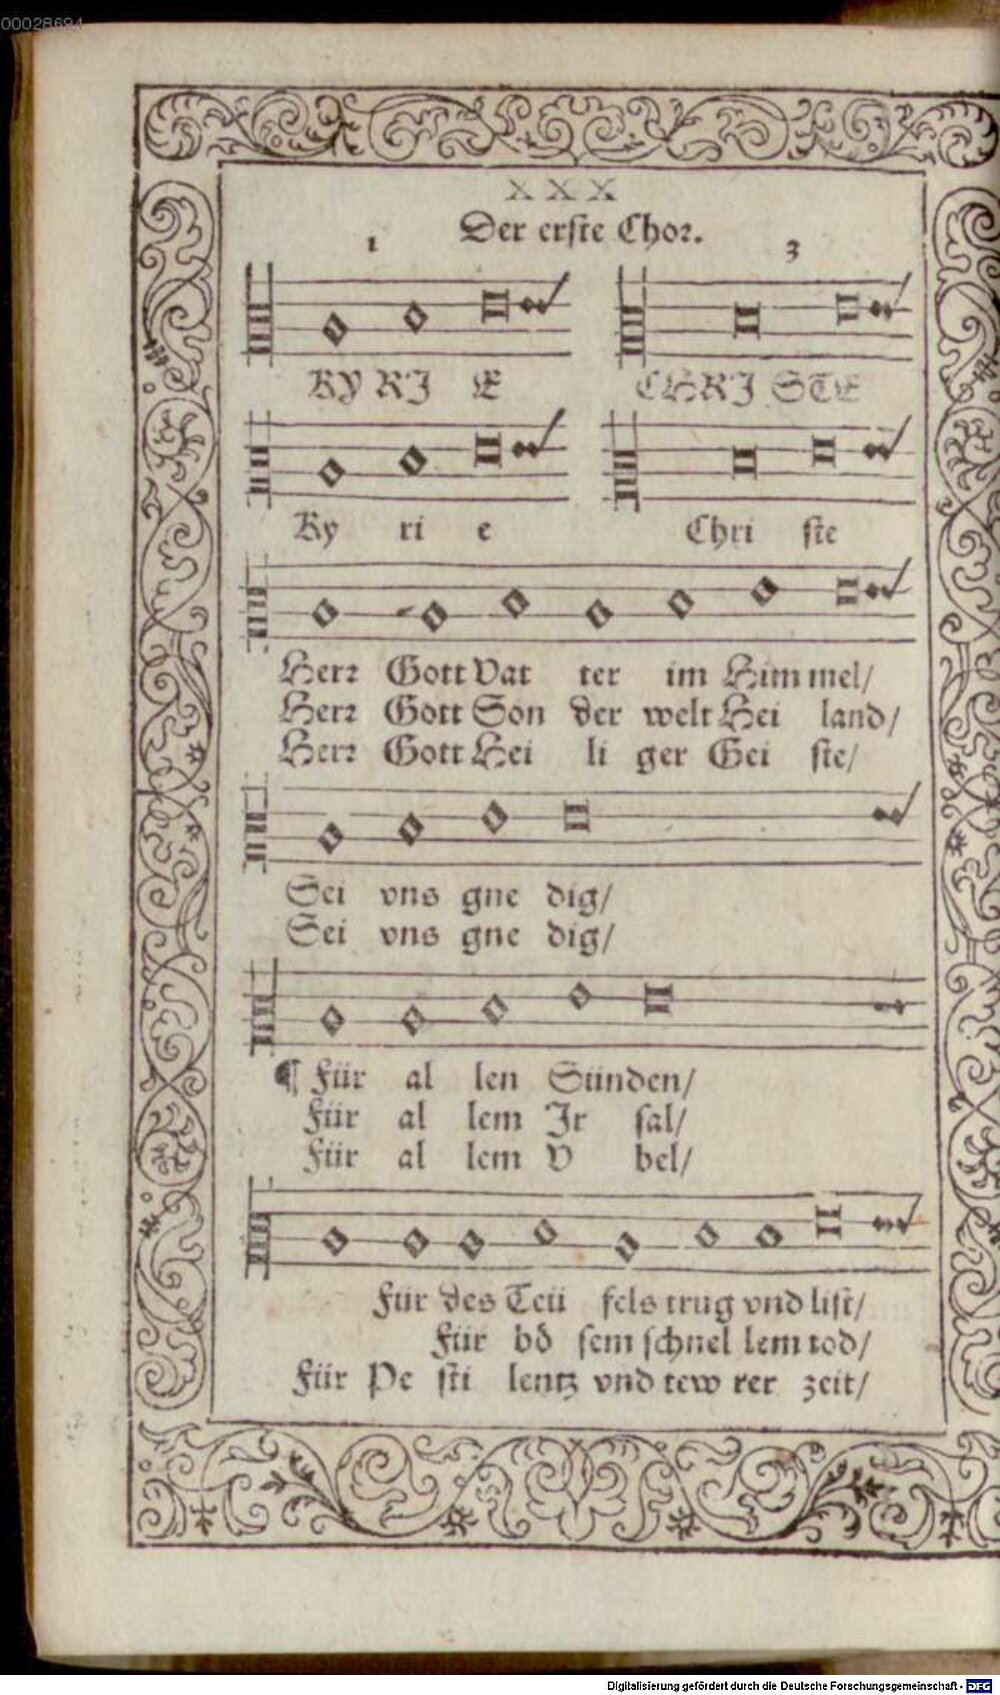 00028694
XXX
Der erste Chor.
1 3
KY RI E CHRI STE
Ky ri e Chri ste
Herr Gott Vat ter im Him mel/
Herr Gott Son der welt Hei land/
Herr Gott Hei li ger Gei ste/
Sei vns gne dig/
Sei vns gne dig/
¶ Für al len Sünden/
Für al lem Jr sal/
Für al lem V bel/
Für des Teü fels trug vnd list/
Für bö sem schnel lem tod/
Für Pe sti lentz vnd tew rer zeit/
Digitalisierung gefördert durch die Deutsche Forschungsgemeinschaft - DFG